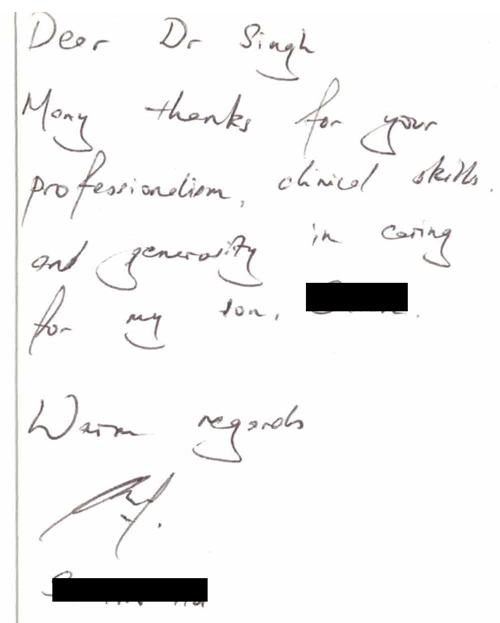 Dear Dr Singh
Many thanks for your
professionalism, clinical skills,
and generosity in caring
for my son,
Warm regards